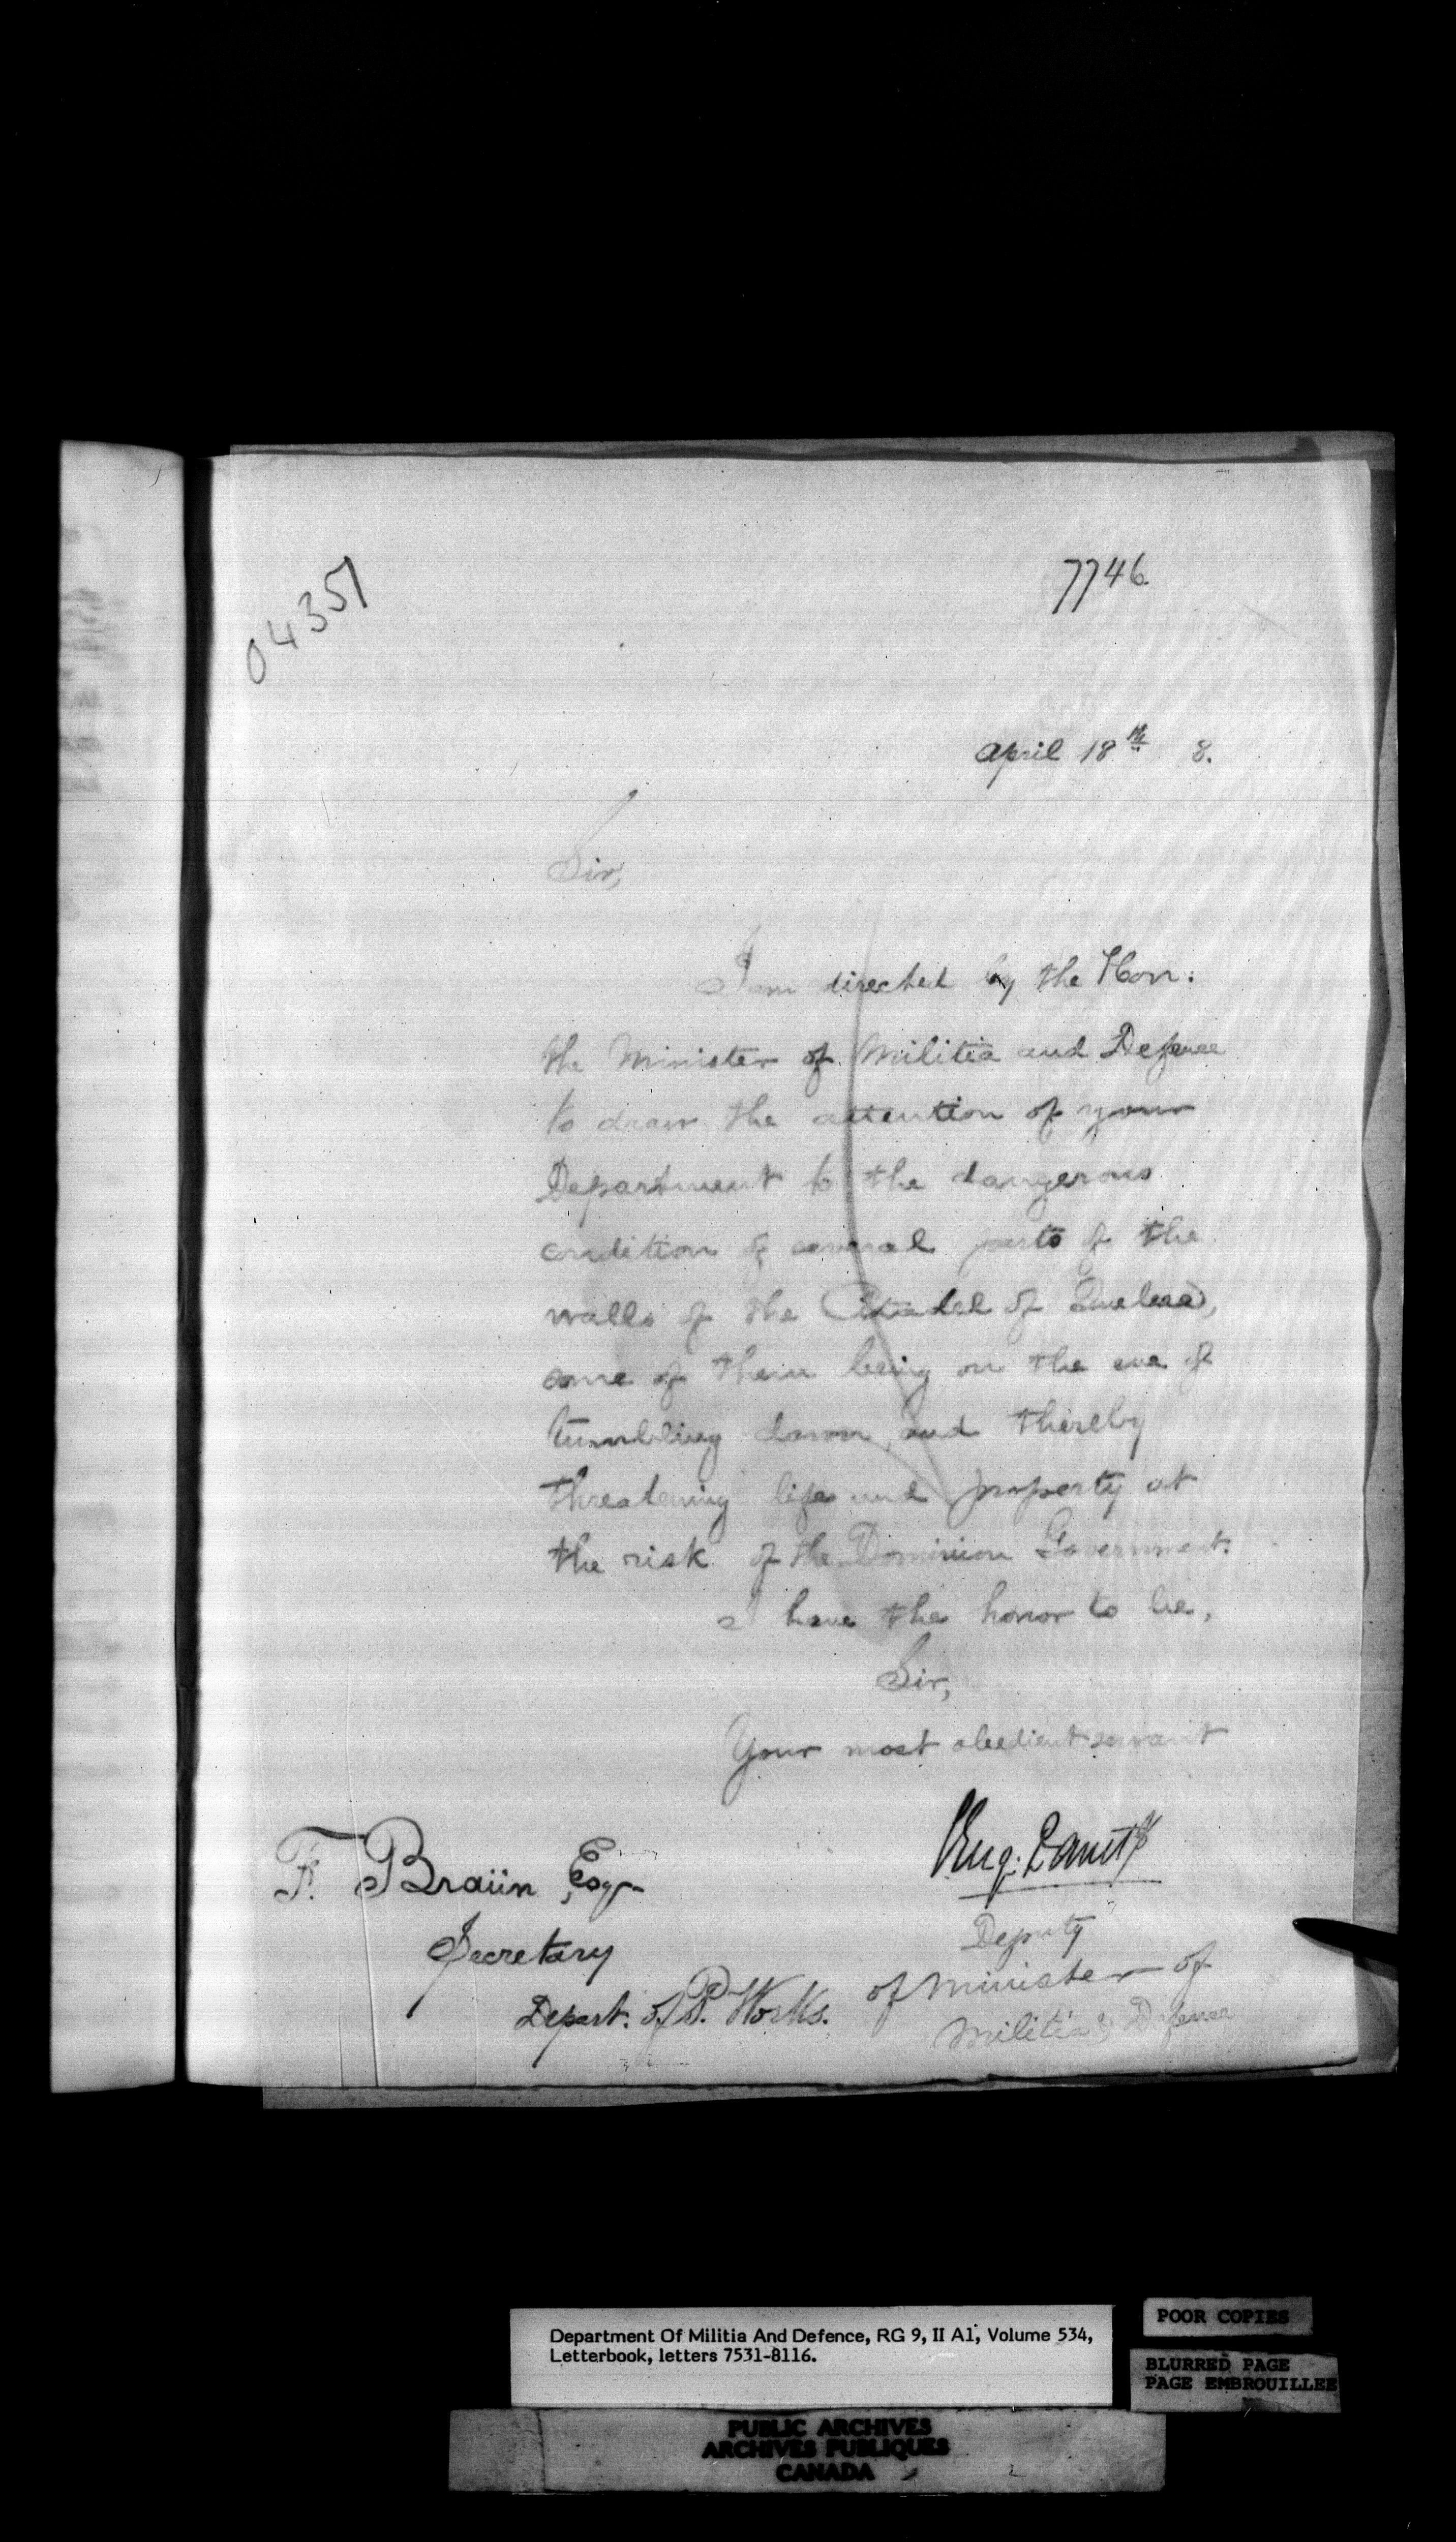 04351
7746
April 18th 8.
Sir,
I am directed by the Hon:
the Minister of Militia and Defence
to draw the attention of your
Department to the dangerous
condition of several parts of the
walls of the Citadel of Quebec,
some of them being on the eve of
tumbling down, and thereby
threatening life and property at
the risk of the Dominion Government.
I have the honor to be,
Sir,
Your most obedient servant
F. Braün, Esqr
Secretary
Depart. of P. Works.
Deputy
of Minister of
Militia & Defence
Department Of Militia And Defence, RG 9, II A1, Volume 534,
Letterbook, letters 7531-8116.
POOR COPIES
BLURRED PAGE
PAGE EMBROUILLEE
PUBLIC ARCHIVES
ARCHIVES PUBLIQUES
CANADA